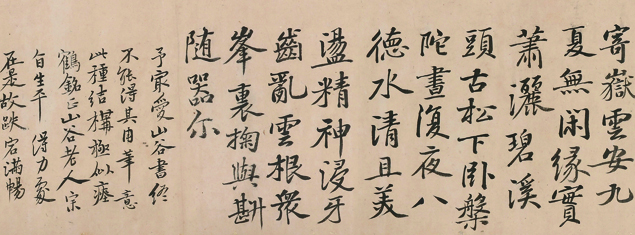 寄嶽雲安九
夏無閑緣實
蕭灑碧溪
頭古松下卧盤
陀晝復夜八
德水清且美
盪精神浸牙
齒亂雲根衆
峯裏掬與斟
随器尔
予最愛山谷書終
不能得其用筆意
此種結構極似瘞
鶴銘正山谷老人宗
自生平得力處
在是故跌宕滿暢